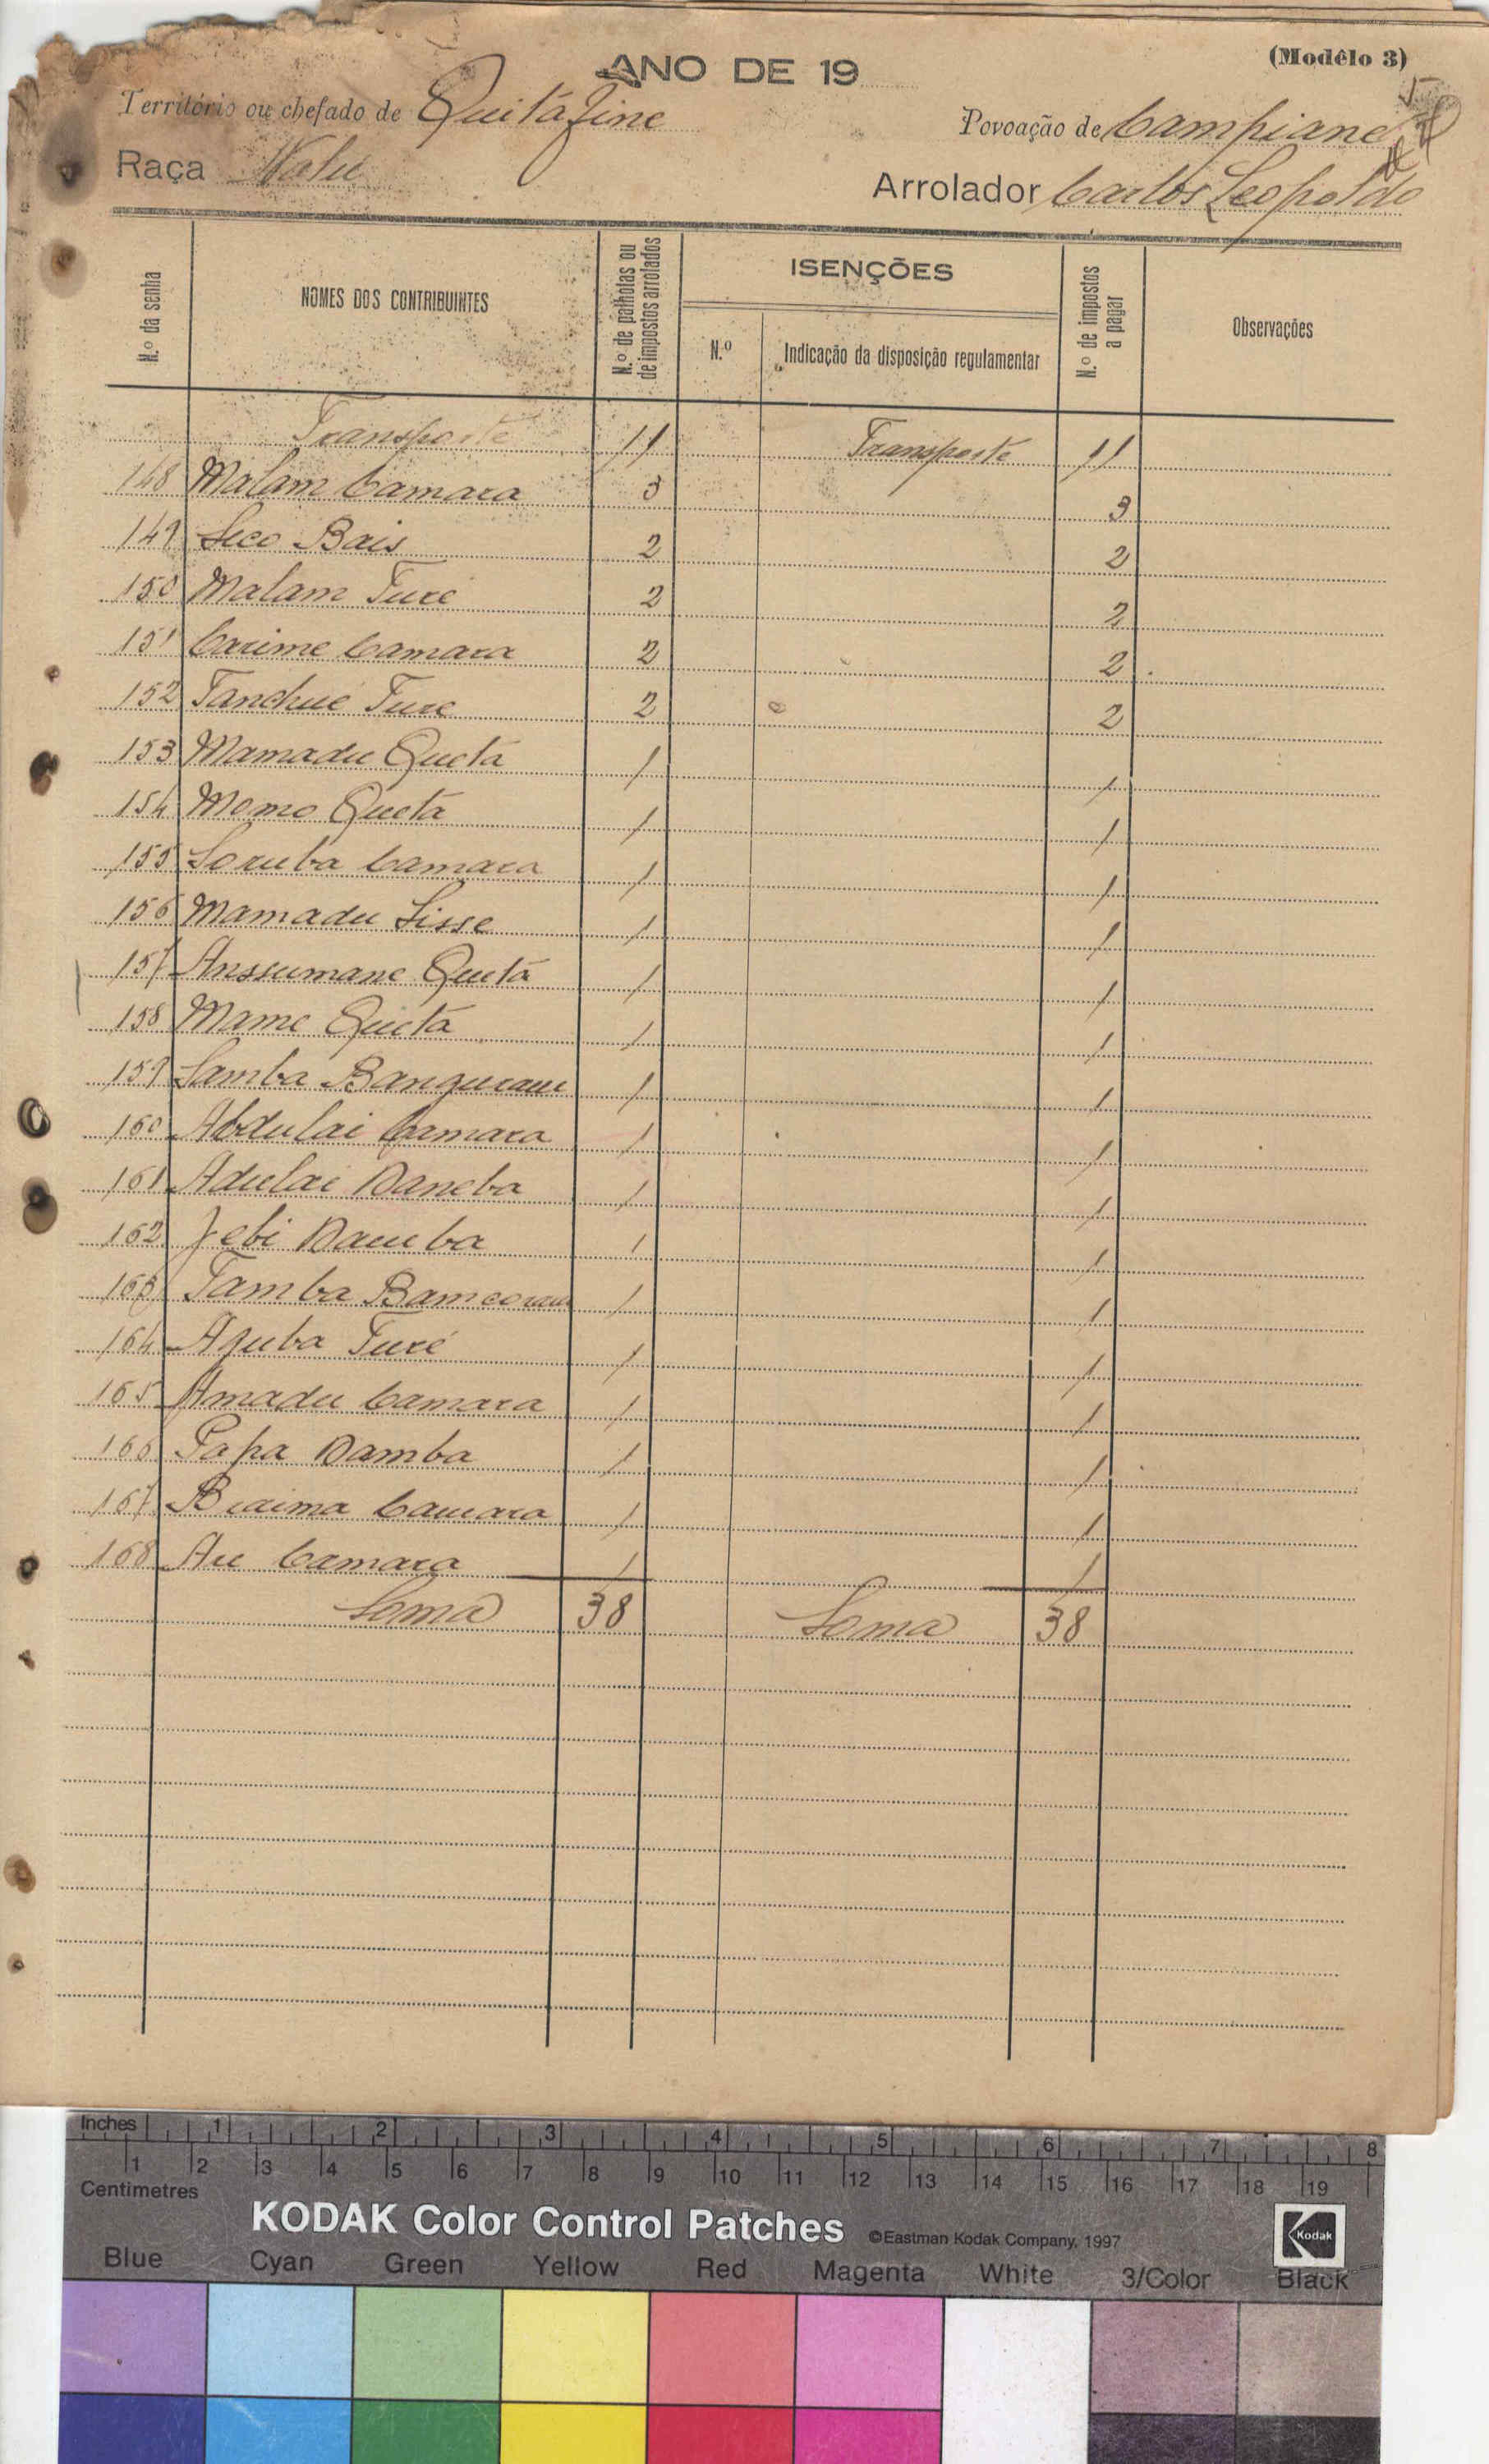 (Modêlo 3)
ANO DE 19
Território ou chefado de Quitáfine
Povoação de Campiane
Raça Nalú
Arrolador Carlos Leopoldo
N.º da senha
NOMES DOS CONTRIBUINTES
N.º de palhotas ou de impostos arrolados
ISENÇÕES
N.º
Indicação da disposição regulamentar
N.º de impostos a pagar
Observações
Transporte 11 Transporte 11
148 Malam Camara 3 3
149 Seco Bais 2 2
150 Malam Turé 2 2
151 Carime Camara 2 2
152 Tanchué Ture 2 2
153 Mamadu Quetá 1 1
154 Momo Quetá 1 1
155 Soruba Camara 1 1
156 Mamadu Sisse 1 1
157 Anssumane Quetá 1 1
158 Mame Quetá 1 1
159 Samba Bangurau 1 1
160 Abdulai Camara 1 1
161 Adulai Daneba 1 1
162 Jebi Damba 1 1
163 Tamba 1 1
164 Aquba Turé 1 1
165 Amadu Camara 1 1
166 Papa Damba 1 1
167 Braima Camara 1 1
168 Au Camara 1 1
Soma 38 Soma 38
Inches 1 2 3 4 5 6 7 8
1 2 3 4 5 6 7 8 9 10 11 12 13 14 15 16 17 18 19
Centimetres
KODAK Color Control Patches ©Eastman Kodak Company, 1997 Kodak
Blue Cyan Green Yellow Red Magenta White 3/Color Black